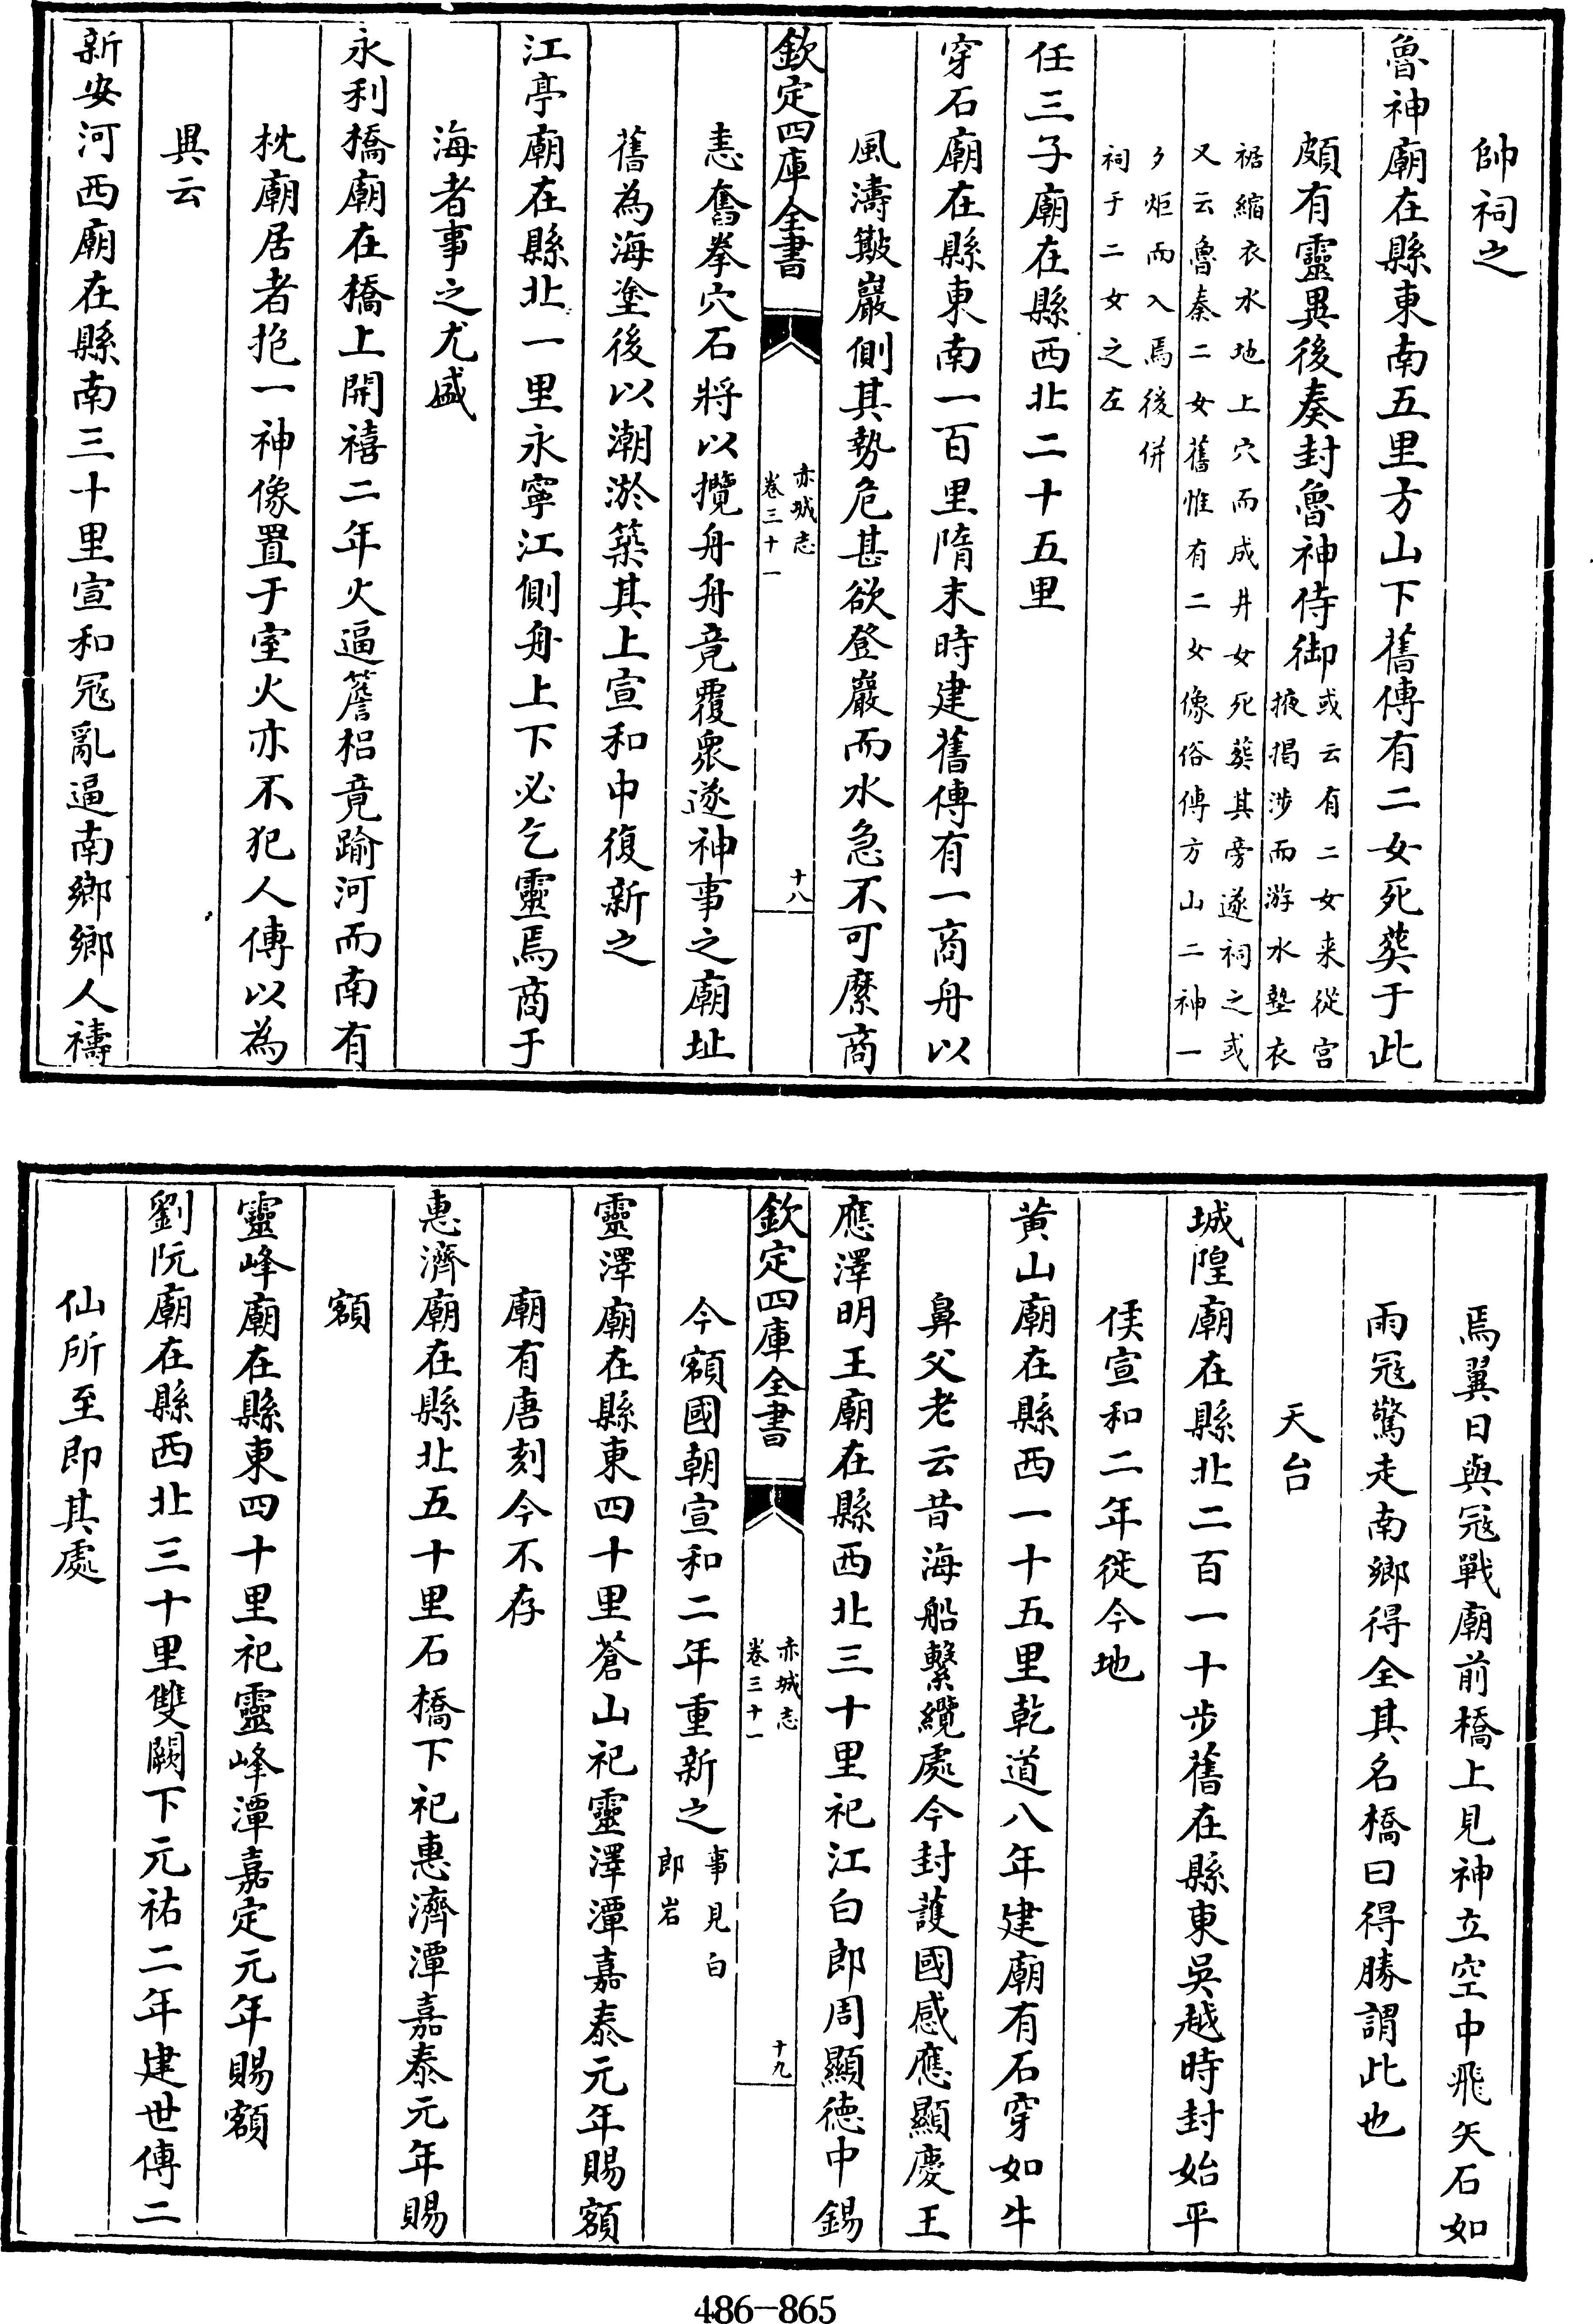 帥祠之
魯神廟在縣東南五里方山下舊傳有二女死葬于此
頗有靈異後奏封魯神侍御
或云有二女来從宫
掖揭涉而游水墊衣
裾縮衣水地上穴而成井女死葬其旁遂祠之或
又云魯秦二女舊惟有二女像俗傳方山二神一
夕炬而入焉後併
祠于二女之左
任三子廟在縣西北二十五里
穿石廟在縣東南一百里隋末時建舊傳有一商舟以
風濤簸巖側其勢危甚欲登巖而水急不可縻商
恚奮拳穴石將以攬舟舟竟覆衆遂神事之廟址
舊為海塗後以潮淤築其上宣和中復新之
江亭廟在縣北一里永寧江側舟上下必乞靈焉商于
海者事之尤盛
永利橋廟在橋上開禧二年火逼簷梠竟踰河而南有
枕廟居者抱一神像置于室火亦不犯人傳以為
異云
新安河西廟在縣南三十里宣和冦亂逼南鄉鄉人禱
欽定四庫全書
赤城志
卷三十一
十八
焉翼日與冦戰廟前橋上見神立空中飛矢石如
雨冦驚走南鄉得全其名橋曰得勝謂此也
天台
城隍廟在縣北二百一十步舊在縣東吳越時封始平
侯宣和二年徙今地
黄山廟在縣西一十五里乾道八年建廟有石穿如牛
鼻父老云昔海船繫纜處今封護國感應顯慶王
應澤明王廟在縣西北三十里祀江白郎周顯德中錫
今額國朝宣和二年重新之
事見白
郎岩
靈澤廟在縣東四十里蒼山祀靈澤潭嘉泰元年賜額
廟有唐刻今不存
惠濟廟在縣北五十里石橋下祀惠濟潭嘉泰元年賜
額
靈峰廟在縣東四十里祀靈峰潭嘉定元年賜額
劉阮廟在縣西北三十里雙闕下元祐二年建世傳二
仙所至即其處
欽定四庫全書
赤城志
卷三十一
十九
486-865